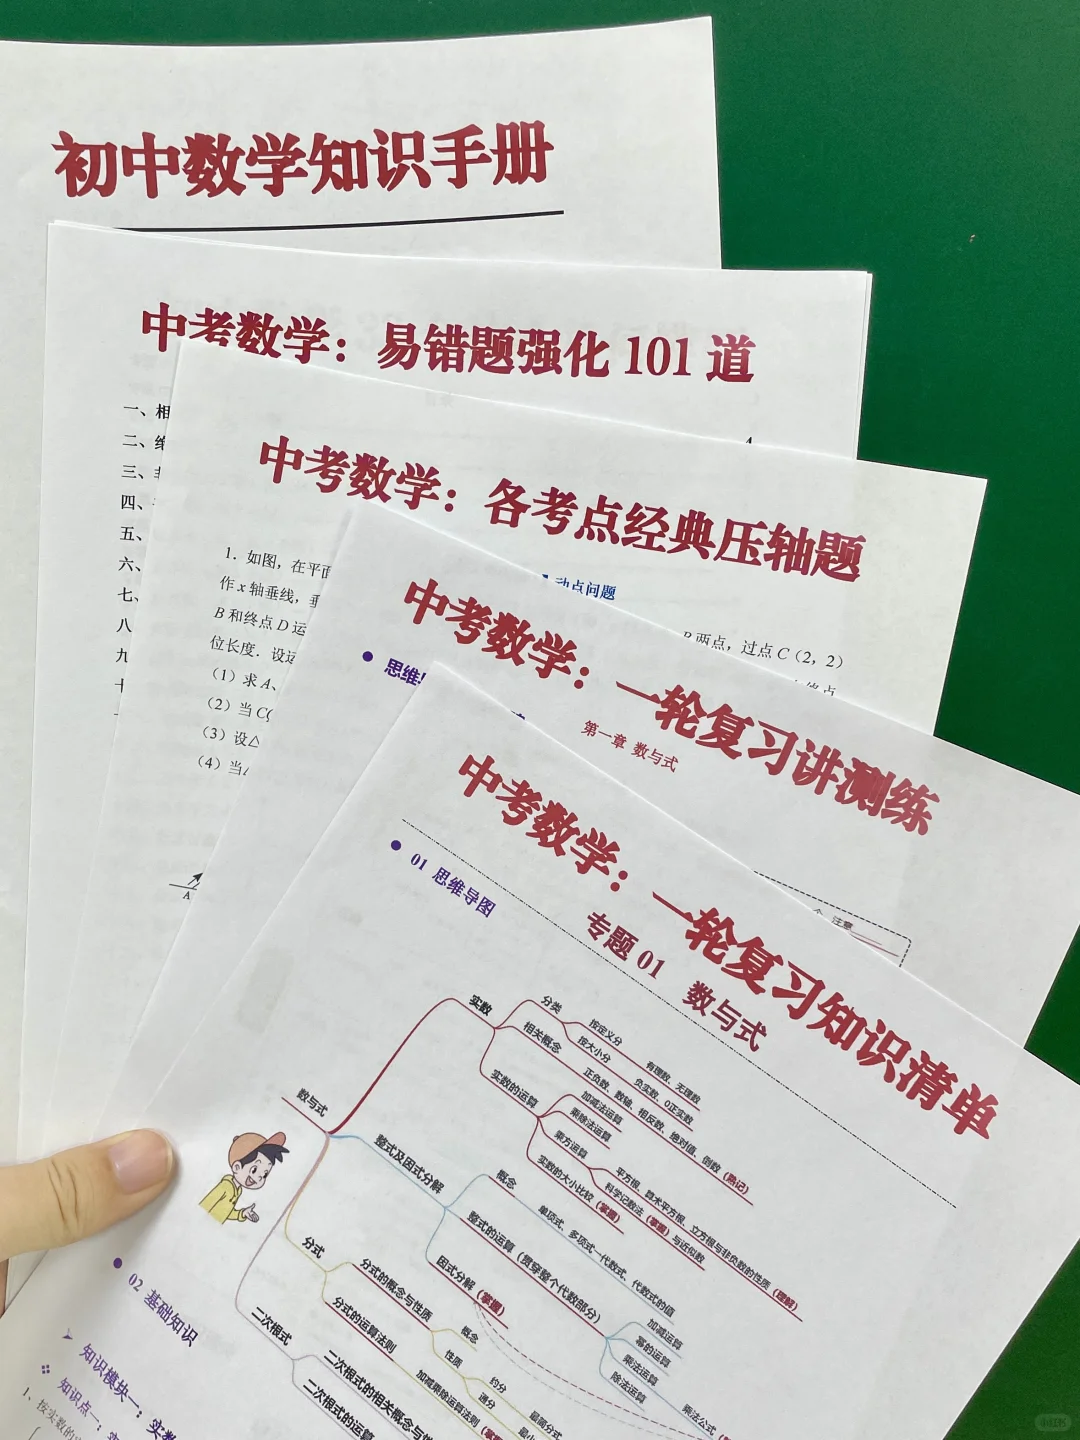 初中数学知识手册
中考数学：易错题强化 101 道
一、相
二、绝
三、非
四、
五、
六、
七、
八
九
十
中考数学：各考点经典压轴题
动点问题
1. 如图，在平面
B 两点，过点 C（2，2）
作 x 轴垂线，垂
B 和终点 D 运
位长度．设运
（1）求 A、
（2）当 C
（3）设△
（4）当
A
中考数学：一轮复习讲测练
第一章 数与式
思维
注意
中考数学：一轮复习知识清单
专题 01 数与式
01 思维导图
数与式
实数
分类
按定义分
有理数、无理数
按大小分
负实数、0正实数
相关概念
正负数、数轴、相反数、绝对值、倒数（熟记）
实数的运算
加减法运算
乘除法运算
乘方运算
平方根、算术平方根、立方根与非负数的性质（理解）
科学记数法（掌握）与近似数
实数的大小比较（掌握）
整式及因式分解
概念
单项式、多项式—代数式、代数式的值
整式的运算（贯穿整个代数部分）
加减运算
幂的运算
乘法运算
乘法公式
除法运算
因式分解（掌握）
分式
分式的概念与性质
概念
性质
约分
最简分式
通分
分式的运算法则
加减乘除运算法则
二次根式
二次根式的相关概念与性
二次根式的运算
02 基础知识
知识模块一：实数
知识点一：
1、按实数的
小红书